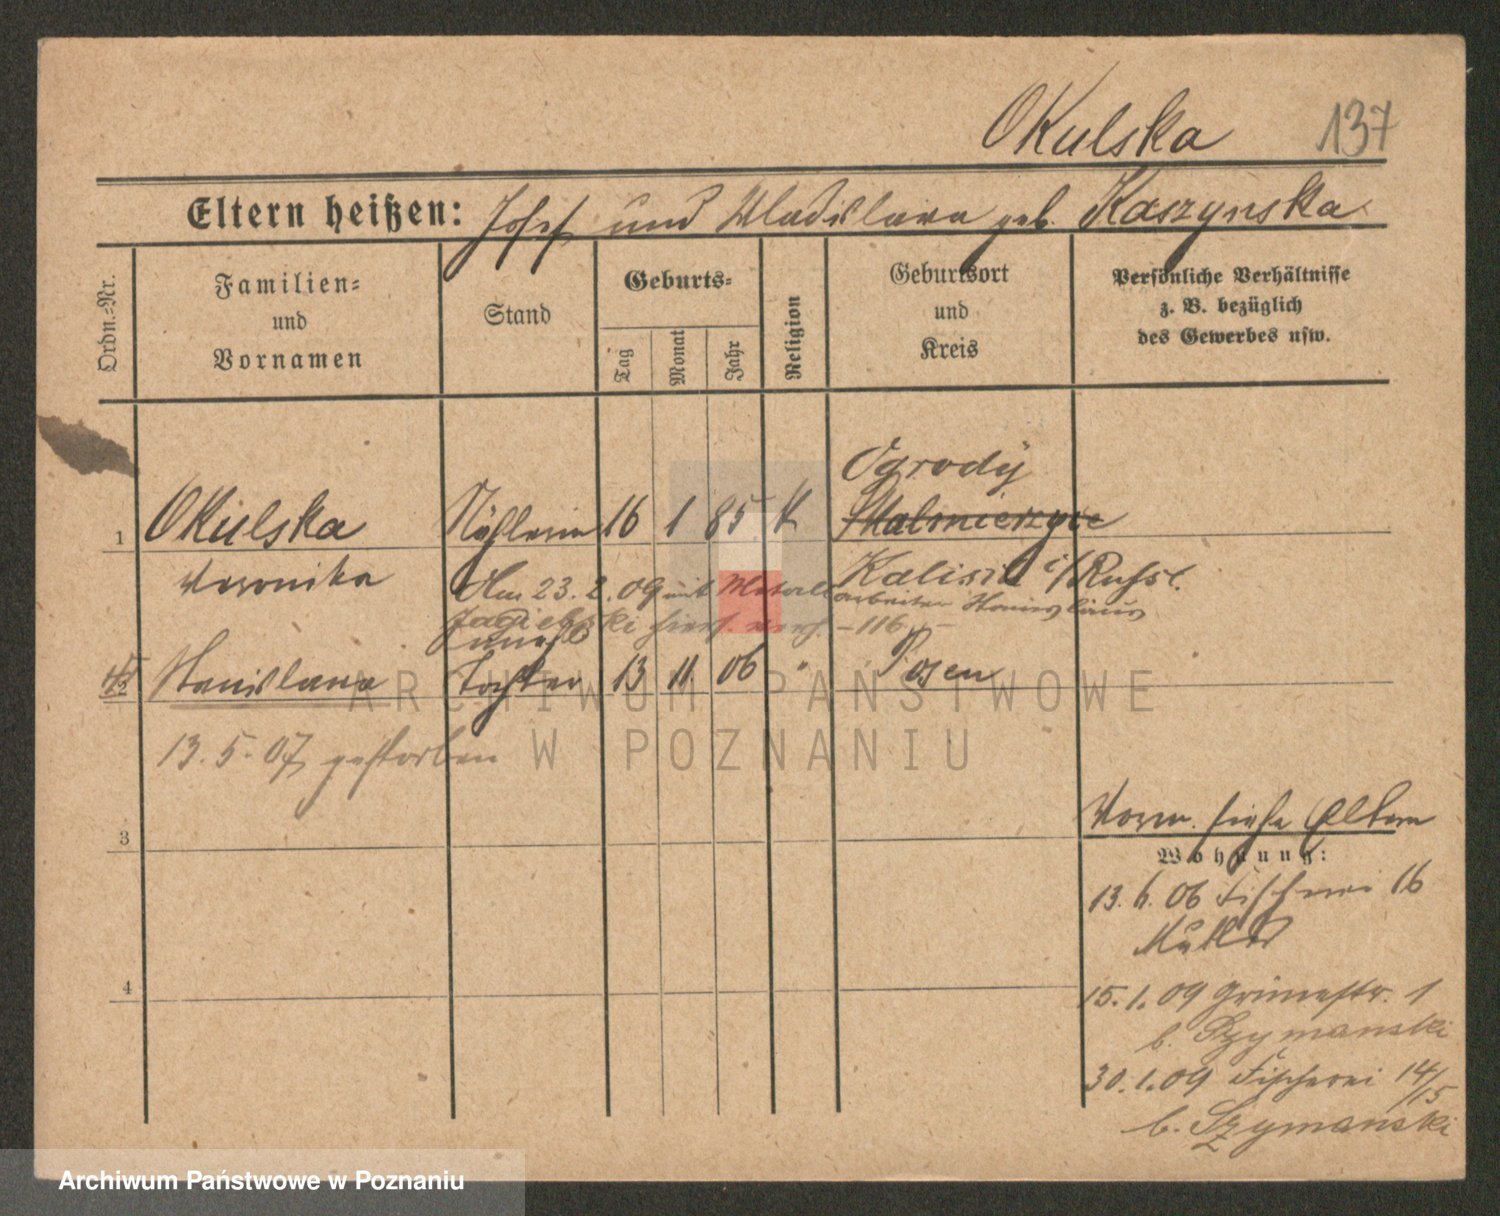 Okulska 137
Eltern heißen: Josef und Wladislawa geb. Kaszynska
Ordn.-Nr.
Familien-
und
Vornamen
Stand
Geburts-
Tag
Monat
Jahr
Religion
Geburtsort
und
Kreis
Persönliche Verhältnisse
z. B. bezüglich
des Gewerbes usw.
Ogrody
1 Okulska Näherin 16 1 85 K
Veronika Kalisch i/Russl.
Am 23. 2. 09 mit Metallarbeiter Stanislaus
Jagielski hier verh. - 116 -
unehl
1/2 Stanislawa Tochter 13 11. 06 " Posen
13. 5. 07 gestorben
3
4
Vorw. siehe Eltern
Wohnung:
13. 6. 06 Fischerei 16
15. 1. 09 Grünestr. 1
b. Szymanski
30. 1. 09 Fischerei 14/15
b. Szymanski
ARCHIWUM PAŃSTWOWE
W POZNANIU
Archiwum Państwowe w Poznaniu